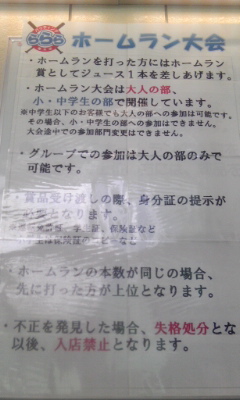 ホームラン大会
・ホームランを打った方にはホームラン
賞としてジュース1本を差しあげます。
・ホームラン大会は大人の部、
小・中学生の部で開催しています。
※中学生以下のお客様でも大人の部への参加は可能です。
その場合、小・中学生の部への参加はできません。
大会途中での参加部門変更はできません。
・グループでの参加は大人の部のみで
可能です。
・賞品受け渡しの際、身分証の提示が
となります。
保険証など
・ホームランの本数が同じの場合、
先に打った方が上位となります。
・不正を発見した場合、失格処分となり
以後、入店禁止となります。